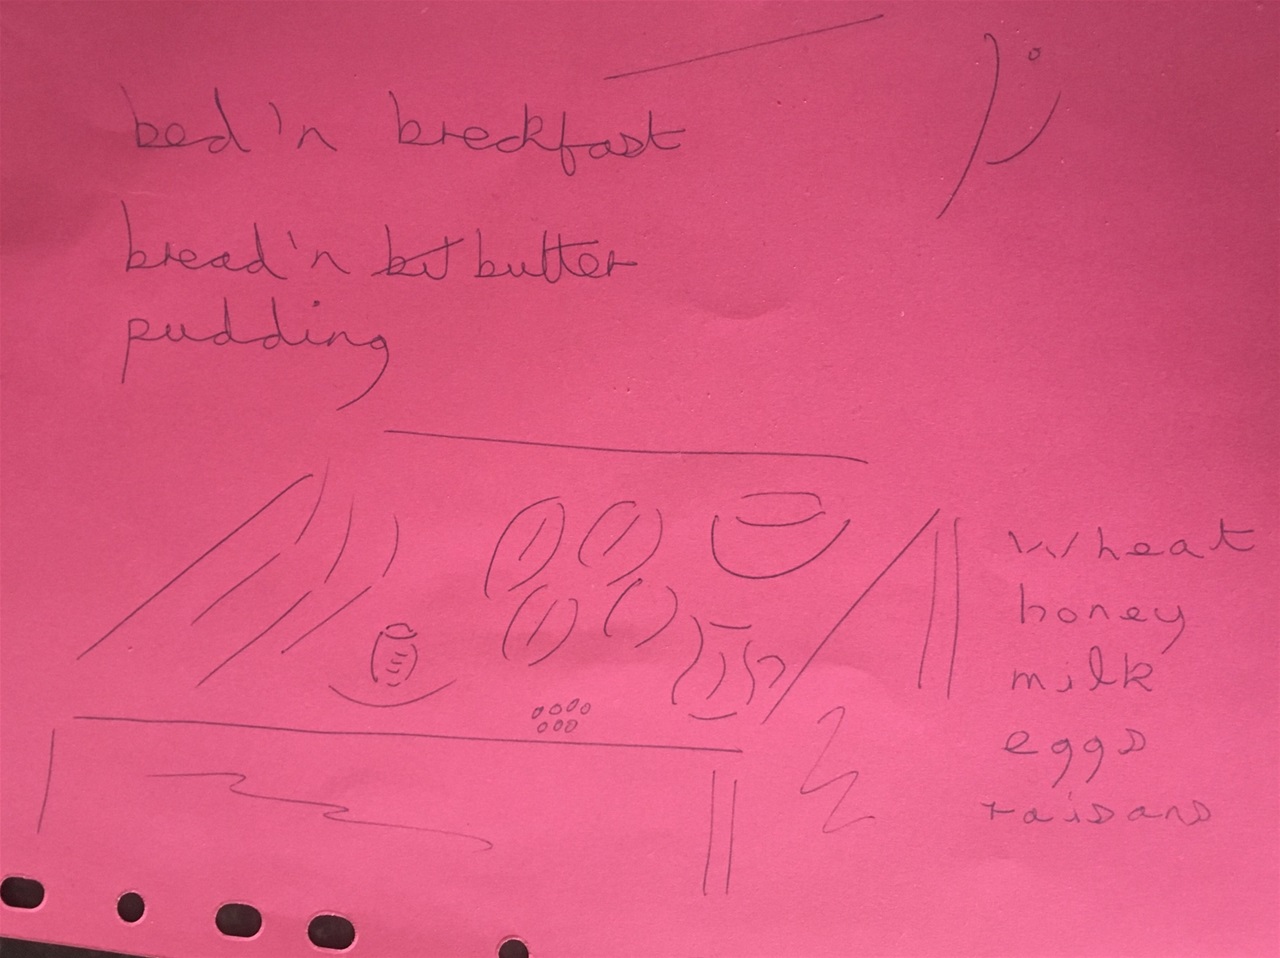 bed 'n breckfast
bread 'n butter
pudding
wheat
honey
milk
eggs
raisans